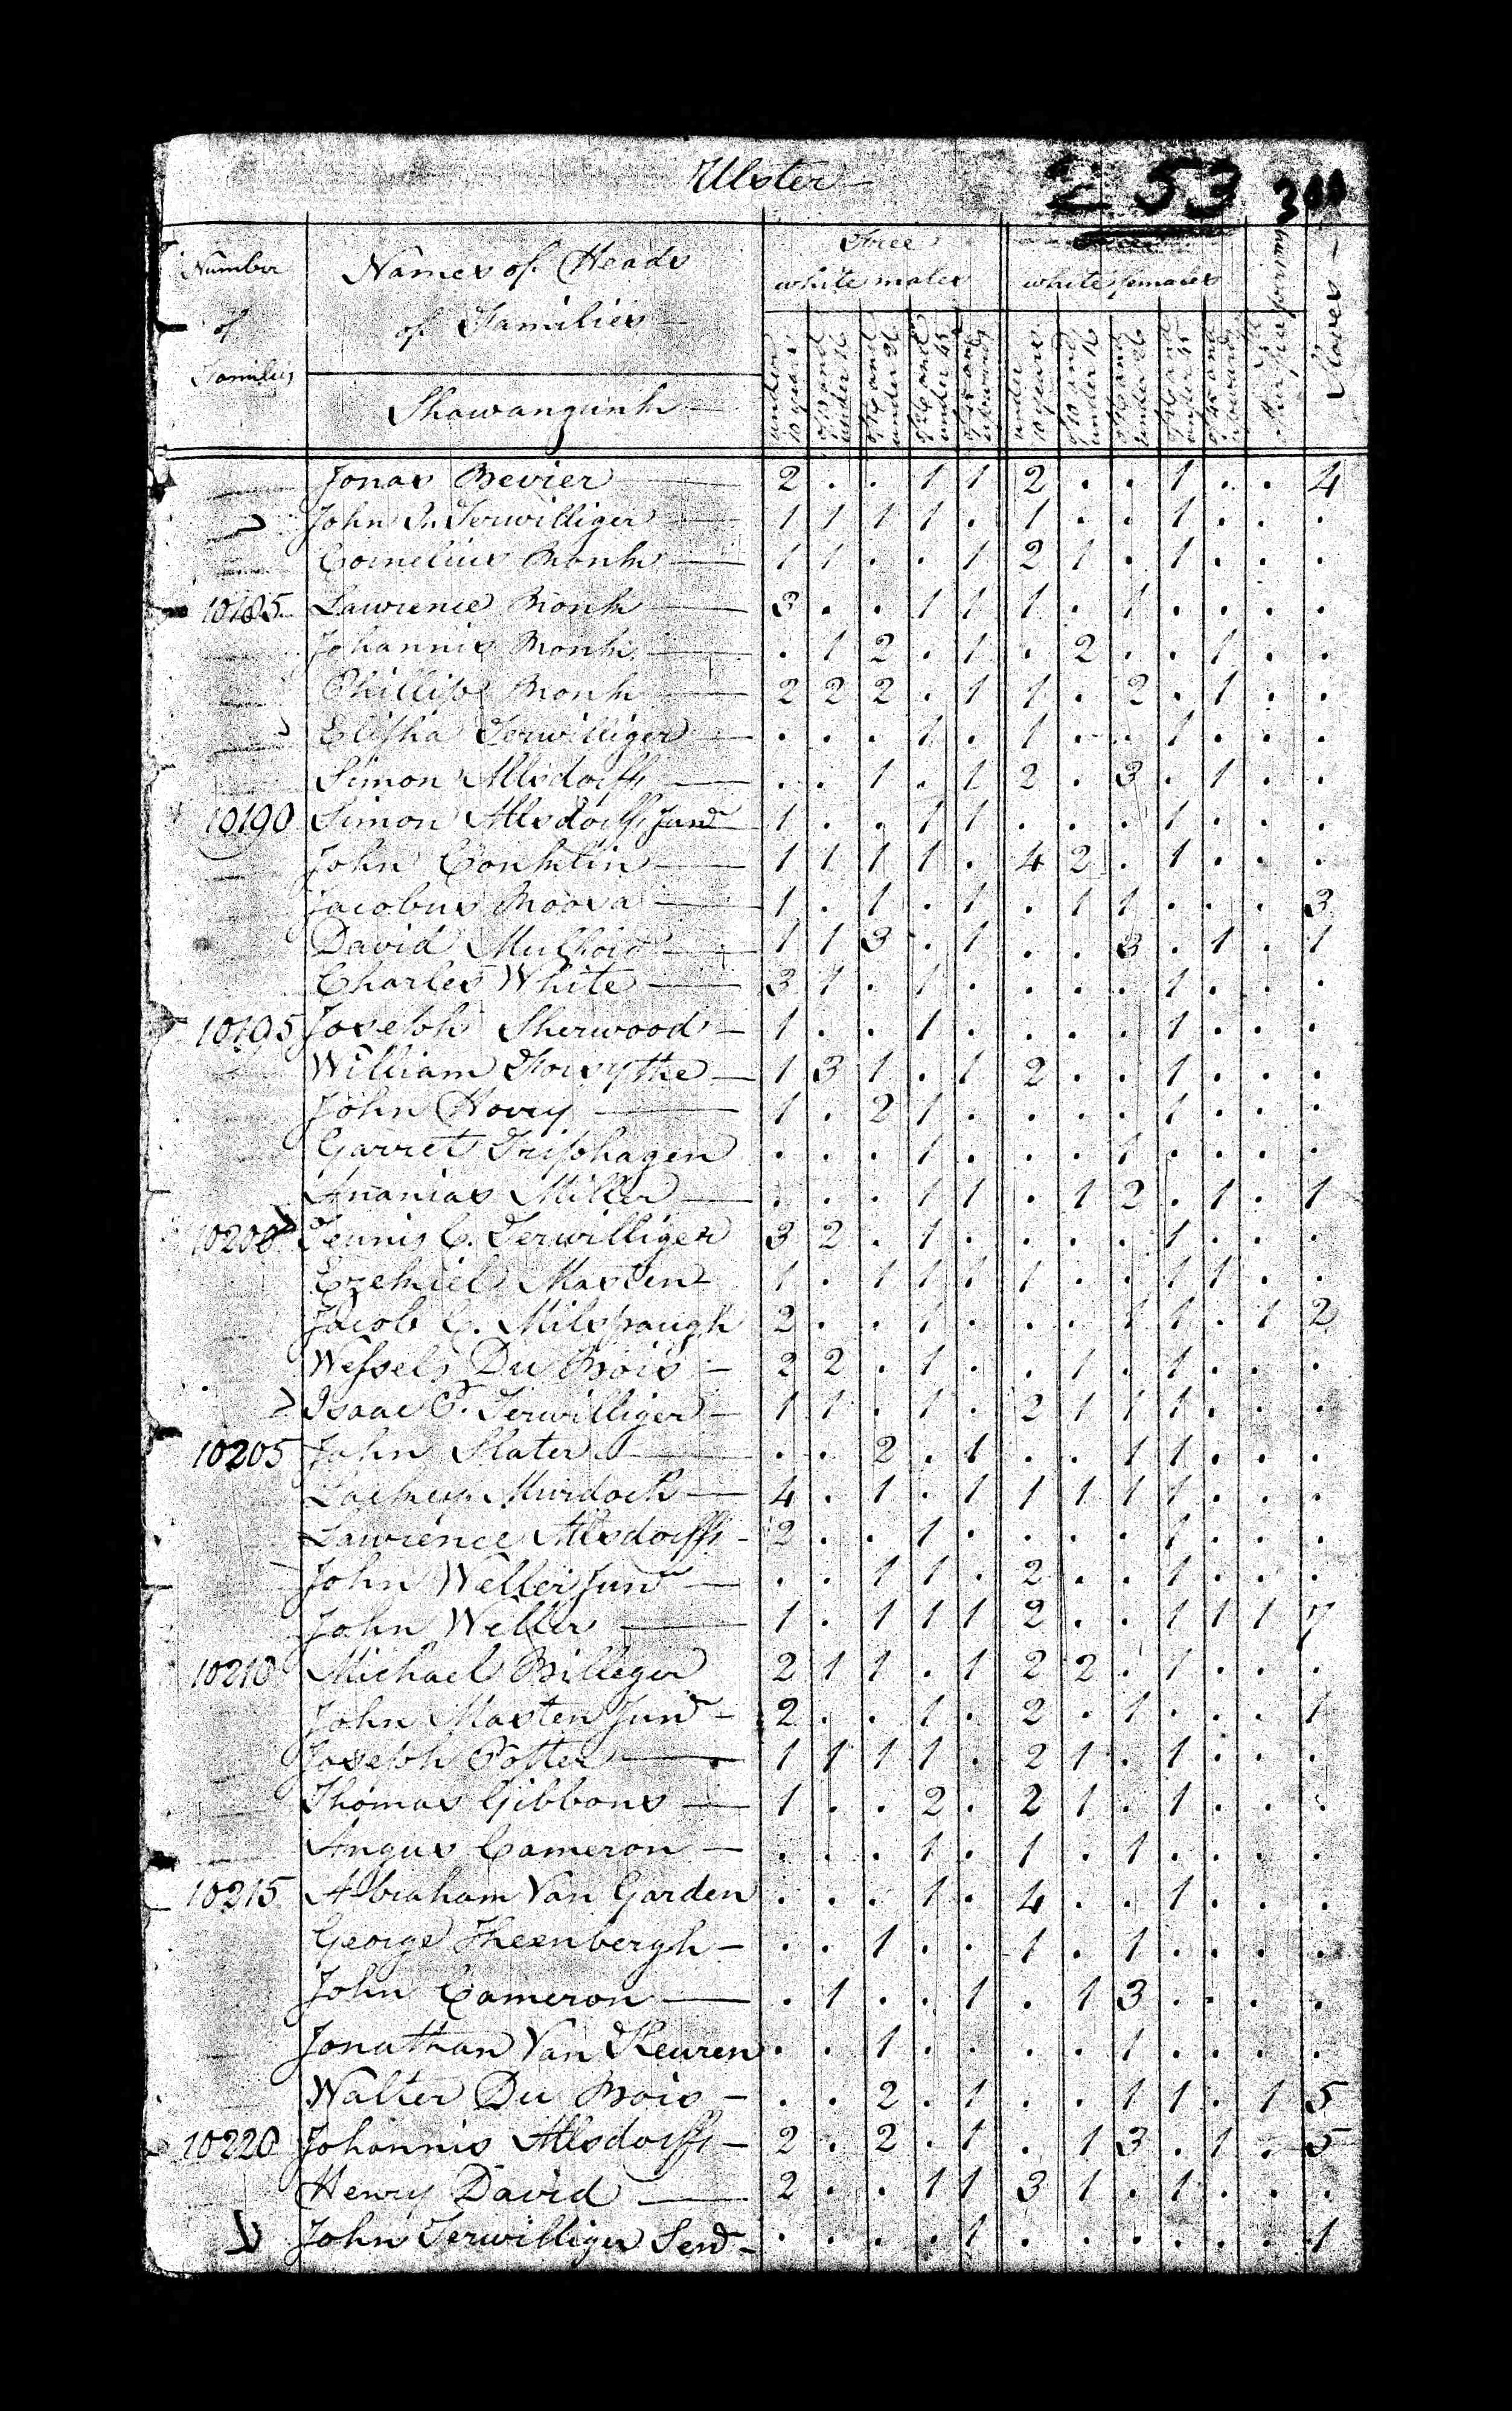 Ulster
253 300
Number of Families
Names of Heads of Families
Shawangunk
Free white males
Free white females
Slaves
under 10 years
of 10 and under 16
of 16 and under 26
of 26 and under 45
of 45 and upwards
under 10 years
of 10 and under 16
of 16 and under 26
of 26 and under 45
of 45 and upwards
Jonas Bevier 2 . . 1 1 2 . . 1 . . 4
John Terwilliger 1 1 1 1 . 1 . . 1 . . .
Cornelius Bronk 1 1 . . 1 2 1 . 1 . . .
10185 Lawrence Bronk 3 . . 1 1 1 . 1 . . . .
Johannis Bronk . 1 2 . 1 . 2 . . 1 . .
Phillip Bronk 2 2 2 . 1 1 . 2 . 1 . .
Elisha Terwilliger . . . 1 . 1 . . 1 . . .
Simon Allsdorff . . 1 . 1 2 . 3 . 1 . .
10190 Simon Allsdorff Junr 1 . . 1 1 . . . 1 . . .
John Conklin 1 1 1 1 . 4 2 . 1 . . .
Jacobus Roosa 1 . 1 . 1 . 1 1 . . . 3
David 1 1 3 . 1 . . 3 . 1 . 1
Charles White 3 1 . 1 . . . . 1 . . .
10195 Joseph Sherwood 1 . . 1 . . . . 1 . . .
William Forsythe 1 3 1 . 1 2 . . 1 . . .
John Hovey 1 . 2 1 . . . . 1 . . .
Garret Triphagen . . . 1 . . . 1 . . . .
Ananias Miller . . . 1 1 . 1 2 . 1 . 1
10200 Teunis C. Terwilliger 3 2 . 1 . . . . 1 . . .
Ezekiel Masten 1 . 1 1 1 1 . . 1 1 . .
Jacob C. Milspaugh 2 . . 1 . . . 1 1 . 1 2
Wessels Du Bois 2 2 . 1 . . 1 . 1 . . .
Isaac T. Terwilliger 1 1 . 1 . 2 1 1 1 . . .
10205 John Slater . . 2 . 1 . . 1 1 . . .
Murdock 4 . 1 . 1 1 1 1 1 . . .
Lawrence Allsdorff 2 . . 1 . . . . 1 . . .
John Weller Junr . . 1 1 . 2 . . 1 . . .
John Weller 1 . 1 1 1 2 . . 1 1 1 7
10210 Michael Billeger 2 1 1 . 1 2 2 . 1 . . .
John Masten Junr 2 . . 1 . 2 . 1 . . . 1
Joseph Potter 1 1 1 1 . 2 1 . 1 . . .
Thomas Gibbons 1 . . 2 . 2 1 . 1 . . .
Angus Cameron . . . 1 . 1 . 1 . . . .
10215 Abraham Van Garden . . . 1 . 4 . . 1 . . .
George . . 1 . . 1 . 1 . . . .
John Cameron . 1 . . 1 . 1 3 . . . .
Jonathan Van Keuren . . 1 . . . . 1 . . . .
Walter Du Bois . . 2 . 1 . . 1 1 . 1 5
10220 Johannis Allsdorff 2 . 2 . 1 . 1 3 . 1 . 5
Henry David 2 . . 1 1 3 1 . 1 . . .
John Terwilliger Senr . . . . 1 . . . . . . 1